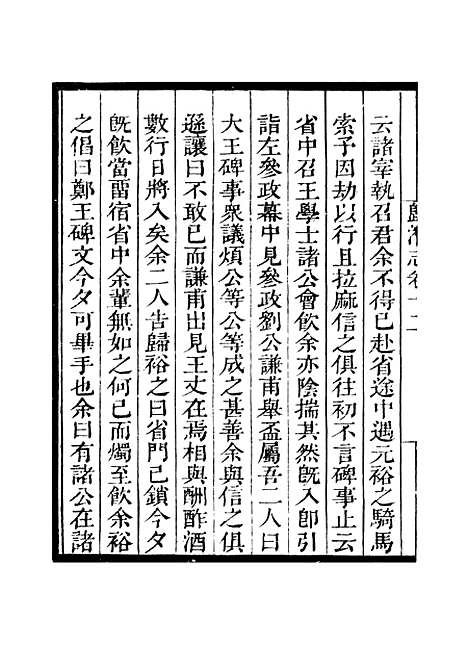 歸潛志卷十二
云諸宰執召君余不得已赴省途中遇元裕之騎馬
索予因劫以行且拉麻信之俱往初不言碑事止云
省中召王學士諸公會飲余亦陰揣其然旣入卽引
詣左參政幕中見參政劉公謙甫舉盃屬吾二人曰
大王碑事衆議煩公等公等成之甚善余與信之俱
遜讓曰不敢已而謙甫出見王丈在焉相與酬酢酒
數行日將入矣余二人告歸裕之曰省門已鎖今夕
旣飲當畱宿省中余輩無如之何已而燭至飲余裕
之倡曰鄭王碑文今夕可畢手也余曰有諸公在諸